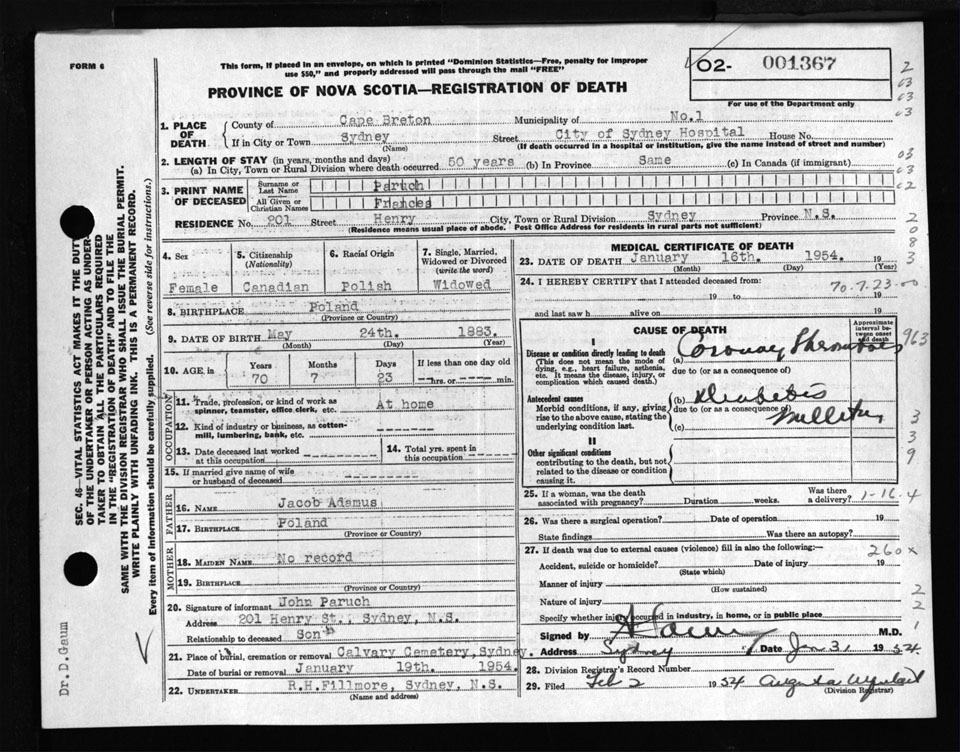 FORM 6
This form, if placed in an envelope, on which is printed "Dominion Statistics—Free, penalty for improper
use $50," and properly addressed will pass through the mail "FREE"
PROVINCE OF NOVA SCOTIA—REGISTRATION OF DEATH
02- 001367
For use of the Department only
1. PLACE OF DEATH. County of Cape Breton Municipality of No.1
If in City or Town Sydney Street City of Sydney Hospital House No.
(Name) (If death occurred in a hospital or institution, give the name instead of street and number)
2. LENGTH OF STAY (in years, months and days)
(a) In City, Town or Rural Division where death occurred 50 years (b) In Province Same (c) In Canada (if immigrant)
3. PRINT NAME OF DECEASED Surname or Last Name Paruch
All Given or Christian Names Frances
RESIDENCE No. 201 Street Henry City, Town or Rural Division Sydney Province N.S.
(Residence means usual place of abode. Post Office Address for residents in rural parts not sufficient)
4. Sex Female
5. Citizenship (Nationality) Canadian
6. Racial Origin Polish
7. Single, Married, Widowed or Divorced (write the word) Widowed
8. BIRTHPLACE Poland
(Province or Country)
9. DATE OF BIRTH May 24th. 1883.
(Month) (Day) (Year)
10. AGE in Years 70 Months 7 Days 23 If less than one day old -- hrs. or -- min.
OCCUPATION
11. Trade, profession, or kind of work as spinner, teamster, office clerk, etc. At home
12. Kind of industry or business, as cotton-mill, lumbering, bank, etc. ------
13. Date deceased last worked at this occupation
14. Total yrs. spent in this occupation
15. If married give name of wife or husband of deceased
FATHER
16. NAME Jacob Adamus
17. BIRTHPLACE Poland
(Province or Country)
MOTHER
18. MAIDEN NAME No record
19. BIRTHPLACE
(Province or Country)
20. Signature of informant John Paruch
Address 201 Henry St., Sydney, N.S.
Relationship to deceased Son
21. Place of burial, cremation or removal Calvary Cemetery, Sydney.
Date of burial or removal January 19th. 1954.
(Month) (Day) (Year)
22. UNDERTAKER R.H.Fillmore, Sydney, N.S.
(Name and address)
MEDICAL CERTIFICATE OF DEATH
23. DATE OF DEATH January 16th. 1954. 19
(Month) (Day) (Year)
24. I HEREBY CERTIFY that I attended deceased from:
70-7-23-00
19 to 19
and last saw h alive on 19
CAUSE OF DEATH
Approximate interval between onset and death
I
Disease or condition directly leading to death
(This does not mean the mode of dying, e.g., heart failure, asthenia, etc. It means the disease, injury, or complication which caused death.)
(a) Coronary Thrombosis
due to (or as a consequence of)
Antecedent causes
Morbid conditions, if any, giving rise to the above cause, stating the underlying condition last.
(b) Diabetes
due to (or as a consequence of) Mellitus
(c)
II
Other significant conditions
contributing to the death, but not related to the disease or condition causing it.
25. If a woman, was the death associated with pregnancy? Duration weeks. Was there a delivery? 1-16-4
26. Was there a surgical operation? Date of operation 19
State findings Was there an autopsy?
27. If death was due to external causes (violence) fill in also the following:— 260x
Accident, suicide or homicide? Date of injury 19
(State which)
Manner of injury
(How sustained)
Nature of injury
Specify whether injury occurred in industry, in home, or in public place
Signed by M.D.
Address Sydney Date Jan 31 1954
28. Division Registrar's Record Number
29. Filed Feb 2 1954 Augusta
(Division Registrar)
SEC. 46—VITAL STATISTICS ACT MAKES IT THE DUTY
OF THE UNDERTAKER OR PERSON ACTING AS UNDER-
TAKER TO OBTAIN ALL THE PARTICULARS REQUIRED
IN THE "REGISTRATION OF DEATH" AND TO FILE THE
SAME WITH THE DIVISION REGISTRAR WHO SHALL ISSUE THE BURIAL PERMIT.
WRITE PLAINLY WITH UNFADING INK. THIS IS A PERMANENT RECORD.
Every item of information should be carefully supplied. (See reverse side for instructions.)
Dr.D.Gaum
2
03
03
03
03
03
02
2
0
8
3
963
3
3
9
2
2
1